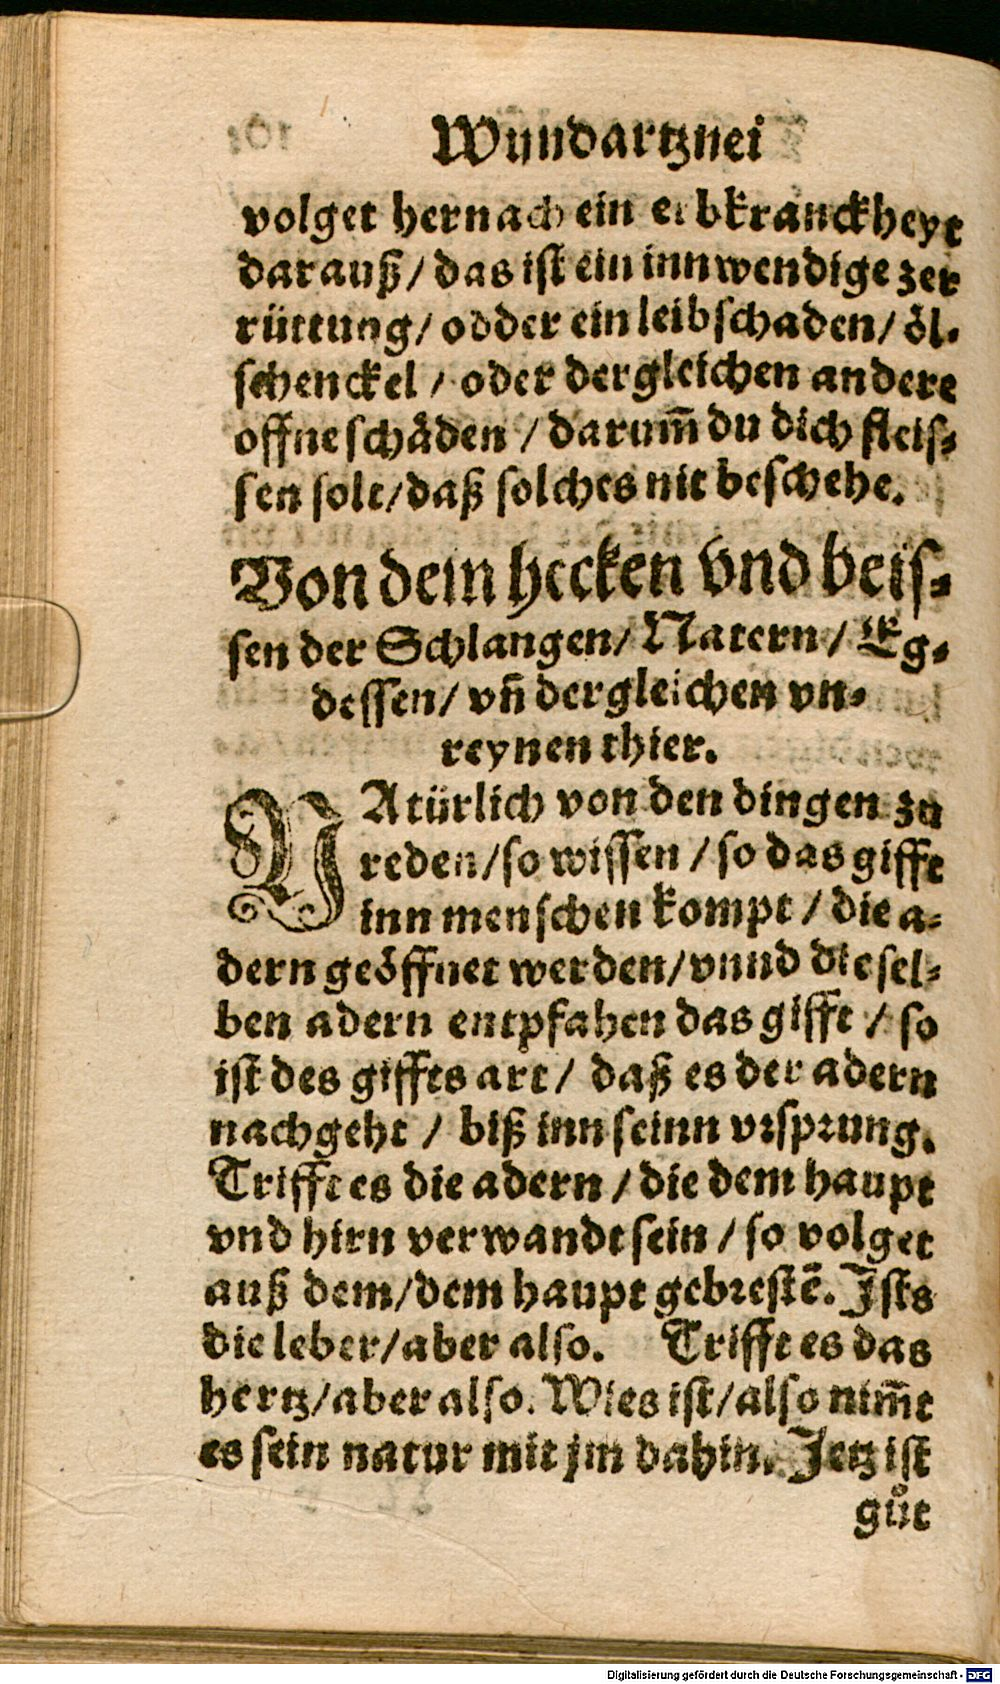 Wundartznei
volget hernach ein erbkranckheyt
darauß/ das ist ein innwendige zer
rüttung/ odder ein leibschaden/ öl-
schenckel / oder dergleichen andere
offne schäden / darum̃ du dich fleis-
sen solt/ daß solches nit beschehe.
Von dem hecken vnd beis-
sen der Schlangen/ Natern/ Eg-
dessen/ vñ dergleichen vn-
reynen thier.
NAtürlich von den dingen zu
reden/ so wissen / so das gifft
inn menschen kompt / die a-
dern geöffnet werden/ vnnd diesel-
ben adern entpfahen das gifft / so
ist des giffts art/ daß es der adern
nachgeht / biß inn seinn vrsprung.
Trifft es die adern / die dem haupt
vnd hirn verwandt sein / so volget
auß dem/ dem haupt gebrestẽ. Ists
die leber/ aber also. Trifft es das
hertz/ aber also. Wies ist/ also nim̃t
es sein natur mit jm dahin. Jetz ist
gůt
Digitalisierung gefördert durch die Deutsche Forschungsgemeinschaft - DFG